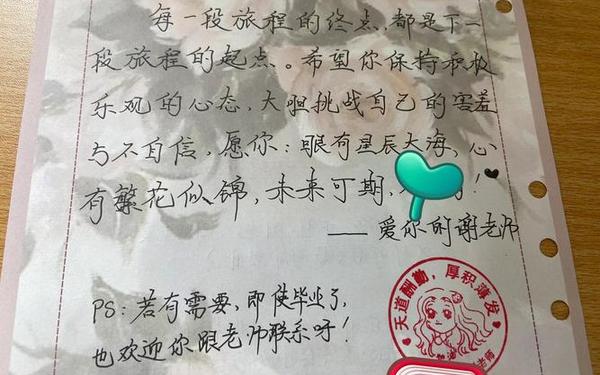 每一段旅程的终点,都是下一
段旅程的起点。希望你保持积极
乐观的心态,大胆挑战自己的害羞
与不自信,愿你:眼有星辰大海,心
有繁花似锦,未来可期,!
——爱你的谢老师
PS:若有需要,即使毕业了,
也欢迎你跟老师联系呀!
天道酬勤,厚积薄发
老师